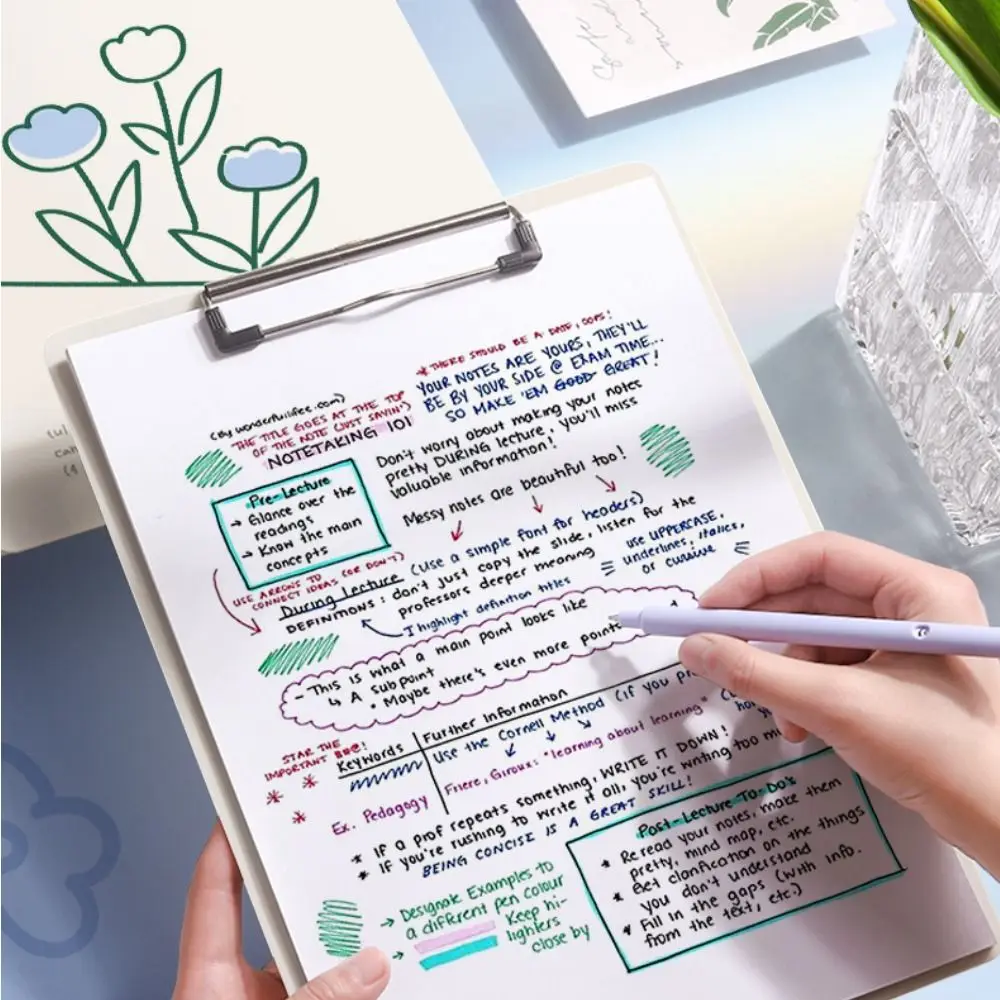 * THERE SHOULD BE A DATE, OOPS!
YOUR NOTES ARE YOURS, THEY'LL
BE BY YOUR SIDE @ EXAM TIME...
SO MAKE 'EM GOOD GREAT!
(by wonderfulifee.com)
THE TITLE GOES AT THE TOP
OF THE NOTE (JUST SAYIN')
NOTETAKING 101
Don't worry about making your notes
pretty DURING lecture, you'll miss
valuable information!
Messy notes are beautiful too!
Pre-Lecture
→ Glance over the
readings
→ Know the main
concepts
USE ARROWS TO
CONNECT IDEAS (OR DON'T)
During Lecture (Use a simple font for headers)
DEFINITIONS: don't just copy the slide, listen for the
professors deeper meaning
I highlight definition titles
use UPPERCASE,
underlines, italics,
or cursive
- This is what a main point looks like
↳ A subpoint
• Maybe there's even more points
STAR THE
IMPORTANT
Keywords
Further Information
Use the Cornell Method (if you
Ex. Pedagogy
Friere, Giroux: "learning about learning"
* If a prof repeats something, WRITE IT DOWN!
* If you're rushing to write it all, you're writing too
BEING CONCISE IS A GREAT SKILL!
→ Designate Examples to
a different pen colour
→ Keep hi-
lighters
close by
Post-Lecture To-Do's
* Reread your notes, make them
pretty, mind map, etc.
* Get clarification on the things
you don't understand
* Fill in the gaps (with info.
from the text, etc.)